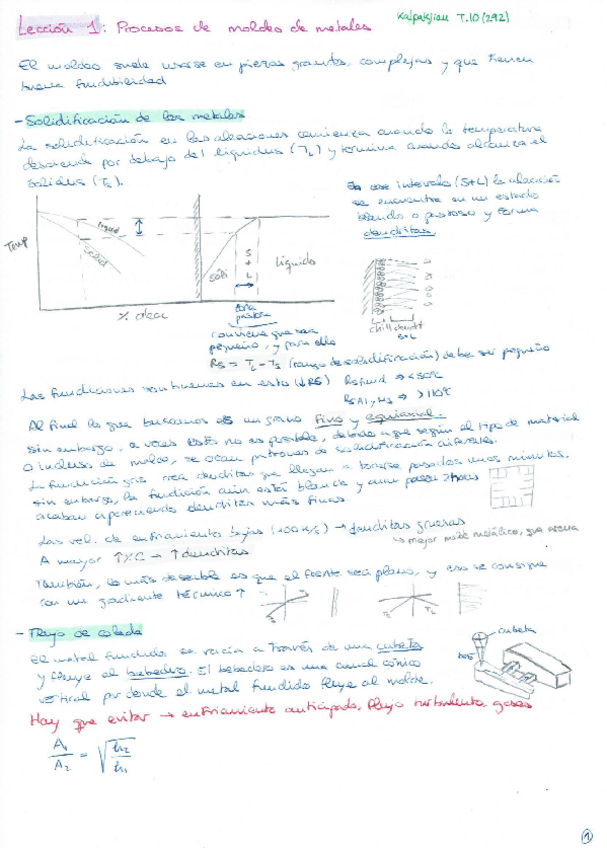 Lección 1: Procesos de moldeo de metales
Kalpakjian T.10 (292)
El moldeo suele usarse en piezas grandes, complejas y que tienen
buena fundibilidad
- Solidificación de los metales
La solidificación en las aleaciones comienza cuando la temperatura
desciende por debajo del liquidus (TL) y termina cuando alcanza el
solidus (Ts).
En ese intervalo (S+L) la aleación
se encuentra en un estado
blando o pastoso y forma
dendritas.
Temp
liquid
solid
% alear
sóli
S
+
L
líquido
zona
pastosa
conviene que sea
pequeño, y para ello
RS = TL - Ts (rango de solidificación) debe ser pequeño
chill
S+L
Las fundiciones son buenas en esto (↓RS) RS fund → <50ºC
RS Al, Mg → >110ºC
Al final lo que buscamos es un grano fino y equiaxial.
sin embargo, a veces esto no es posible, debido a que según el tipo de material
o incluso de molde, se crean patrones de solidificación diferentes.
La fundición gris crea dendritas que llegan a tocarse pasados unos minutos,
sin embargo, la fundición aún está blanda y aún pasan 2 horas
acaban apareciendo dendritas más finas.
Las vel. de enfriamiento bajas (100 K/s) → dendritas gruesas
→ mejor molde metálico, que arena
A mayor ↑%C → ↑dendritas
También, lo más deseable es que el frente sea plano, y eso se consigue
con un gradiente térmico ↑
Ts
TL
- Flujo de colada
El metal fundido se vacía a través de una cubeta
y fluye al bebedero. El bebedero es una canal cónico
vertical por donde el metal fundido fluye al molde.
cubeta
beb
Hay que evitar → enfriamiento anticipado, flujo turbulento, gases
A1/A2 = √(h2/h1)
1